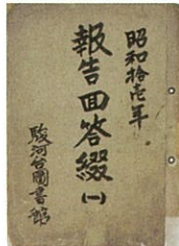 昭和拾壱年
報告回答綴
(一)
駿河台図書館